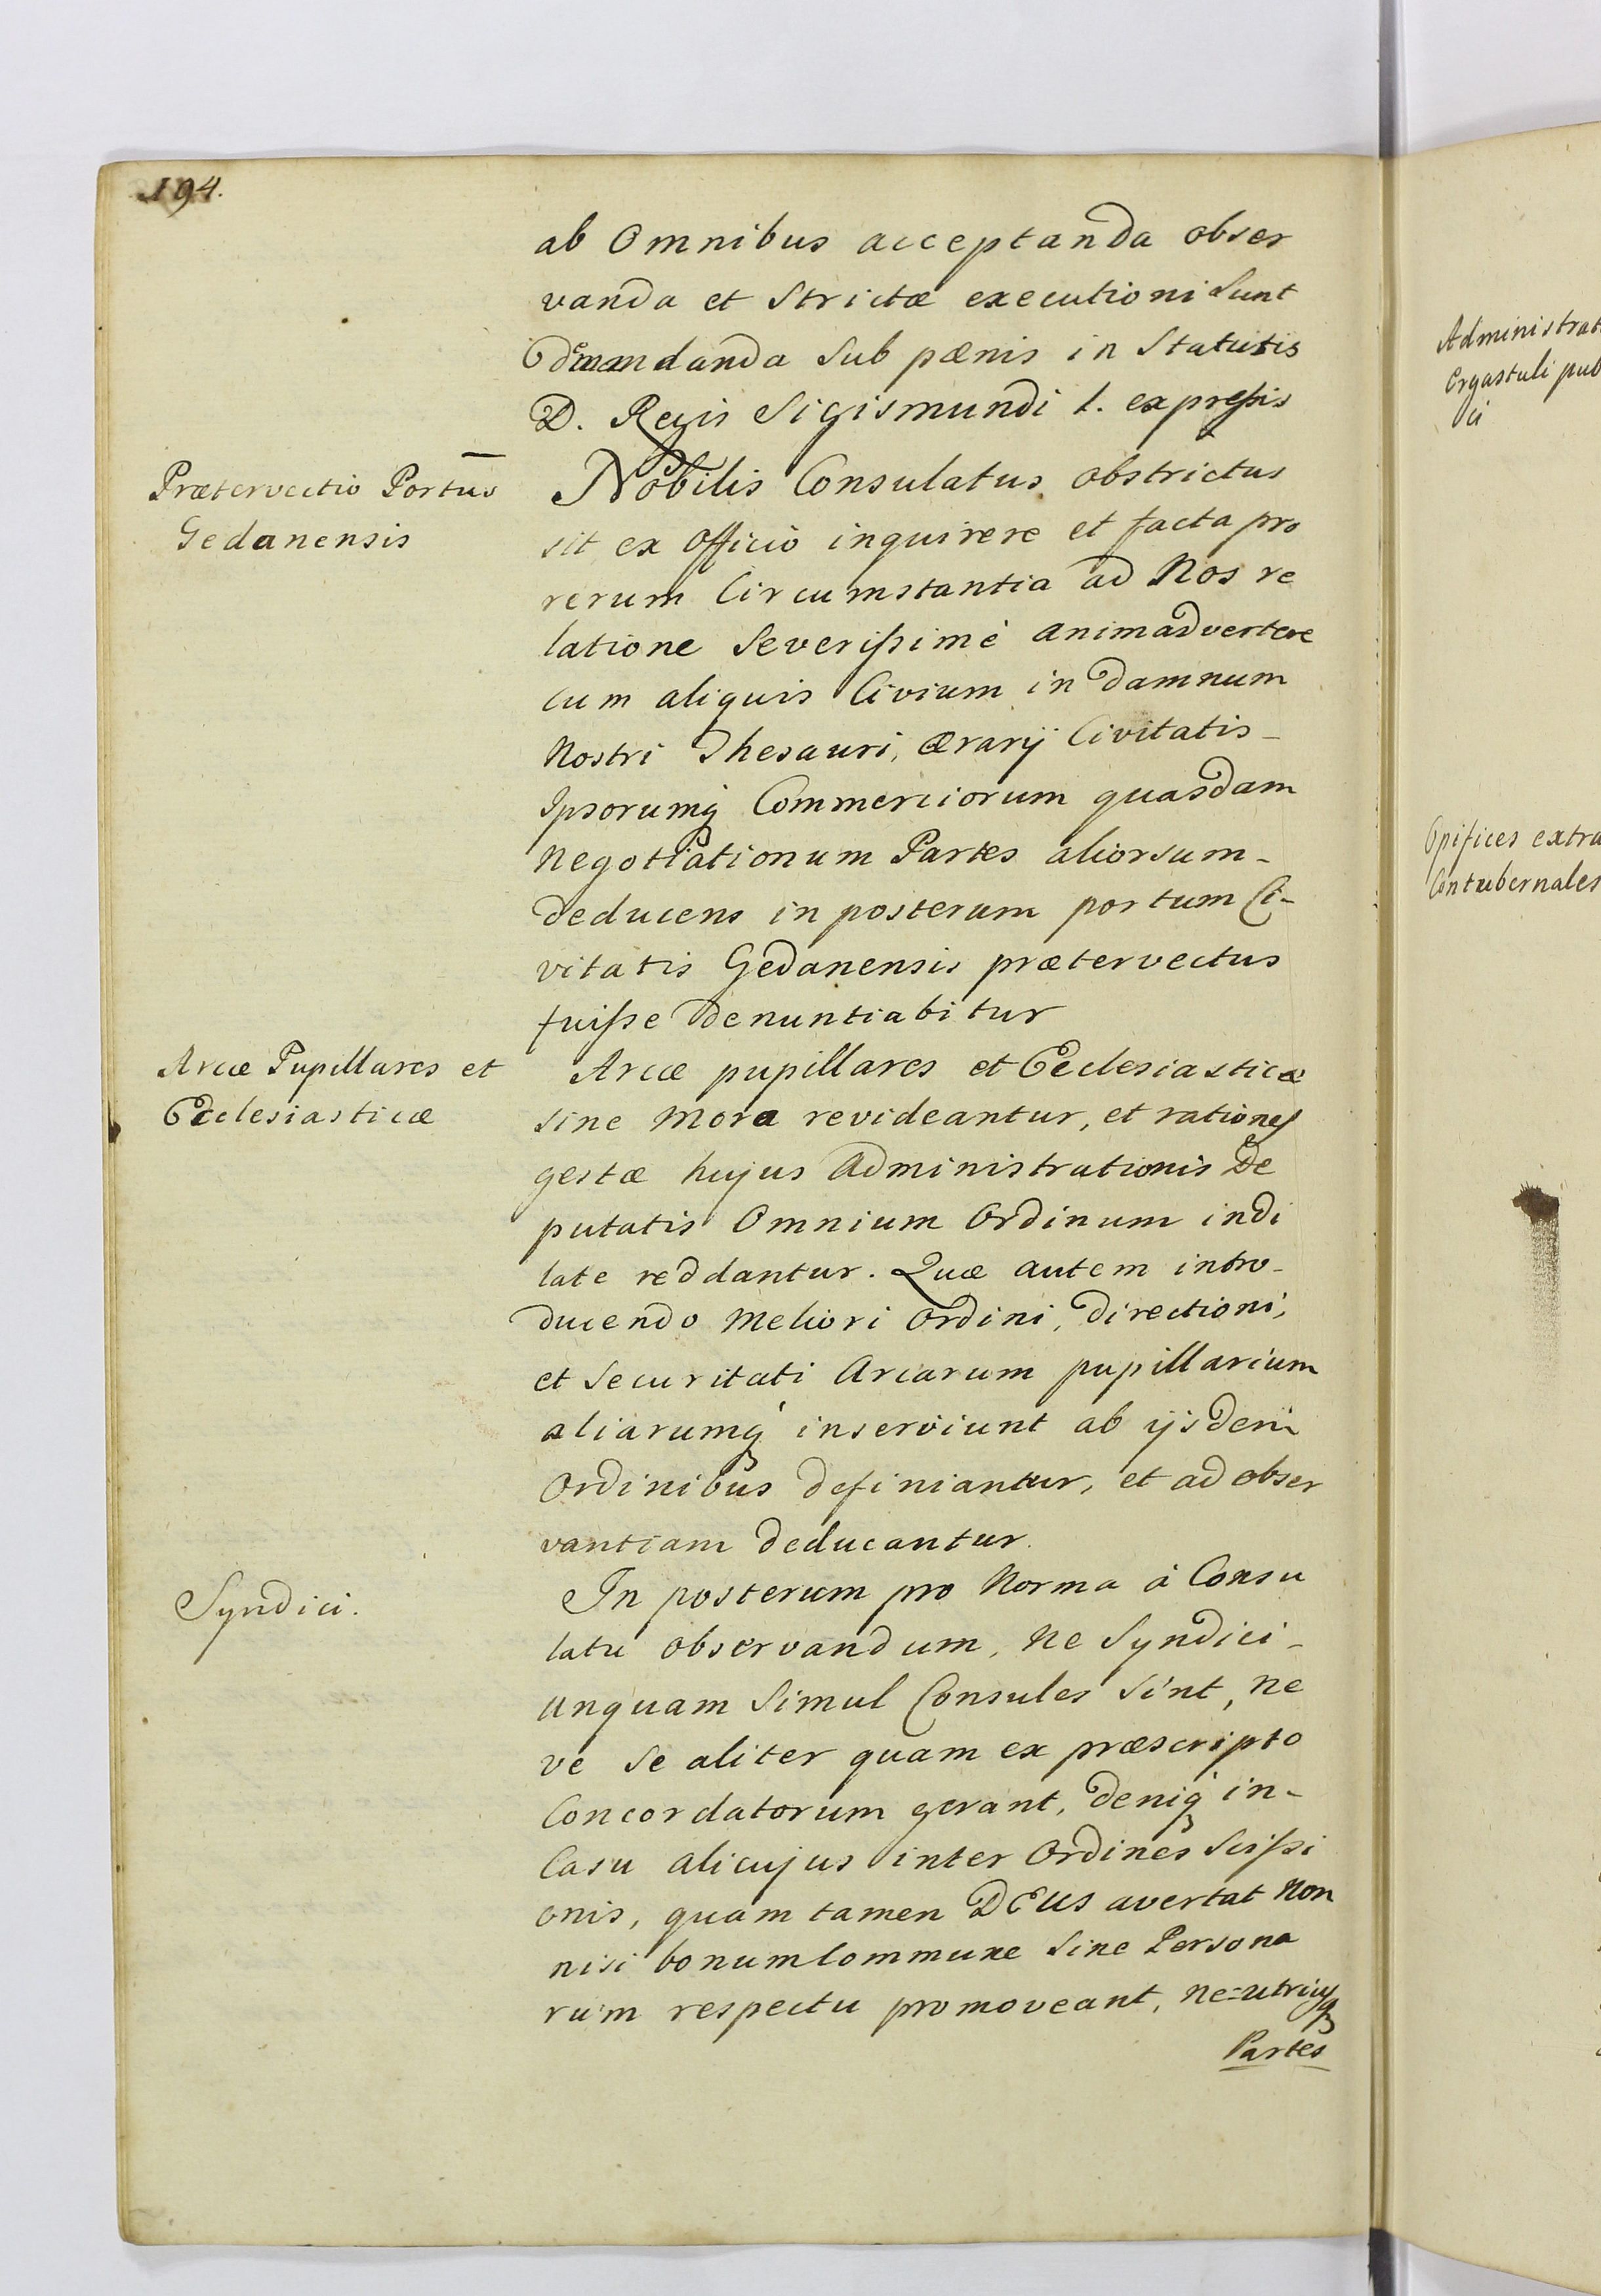 194.
ab Omnibus acceptanda obser
vanda et Strictæ executioni Sunt
demandanda Sub pænis in Statutis
D. Regis Sigismundi 1. expreſsis
Prætervectio Portus
Gedanensis
Nobilis Consulatus obstrictus
sit ex Officio inquirere et facta pro
rerum Circumstantia ad Nos re
latione Severiſsimè animadvertere
cum aliquis Civium in damnum
Nostri Thesauri, ærarij Civitatis-
Ipsorumq Commerciorum quasdam
Negotiationum Partes aliorsum-
deducens in posterum portum Ci-
vitatis Gedanensis prætervectus
fuiſse denuntiabitur
Arcæ Pupillares et
Ecclesiasticæ
Arcæ pupillares et Ecclesiasticæ
sine Mora revideantur, et rationes
gestæ hujus Administrationis De
putatis Omnium Ordinum indi
late reddantur. Quæ autem intro-
ducendo Meliori Ordini, directioni,
et Securitati Arcarum pupillarium
aliarumq inserviunt ab ijsdem
Ordinibus definiantur, et ad obser
vantiam deducantur.
Syndici.
In posterum pro Norma à Consu
latu observandum, Ne Syndici-
unquam Simul Consules Sint, ne
ve Se aliter quam ex præscripto
Concordatorum gerant, deniq in-
Casu alicujus inter Ordines Sciſsi
onis, quam tamen DEUS avertat Non
nisi bonum Commune Sine Persona
rum respectu promoveant, Ne=utriusq
Partes
Administrat
Ergastuli pub
ci
Opifices extra
Contubernales